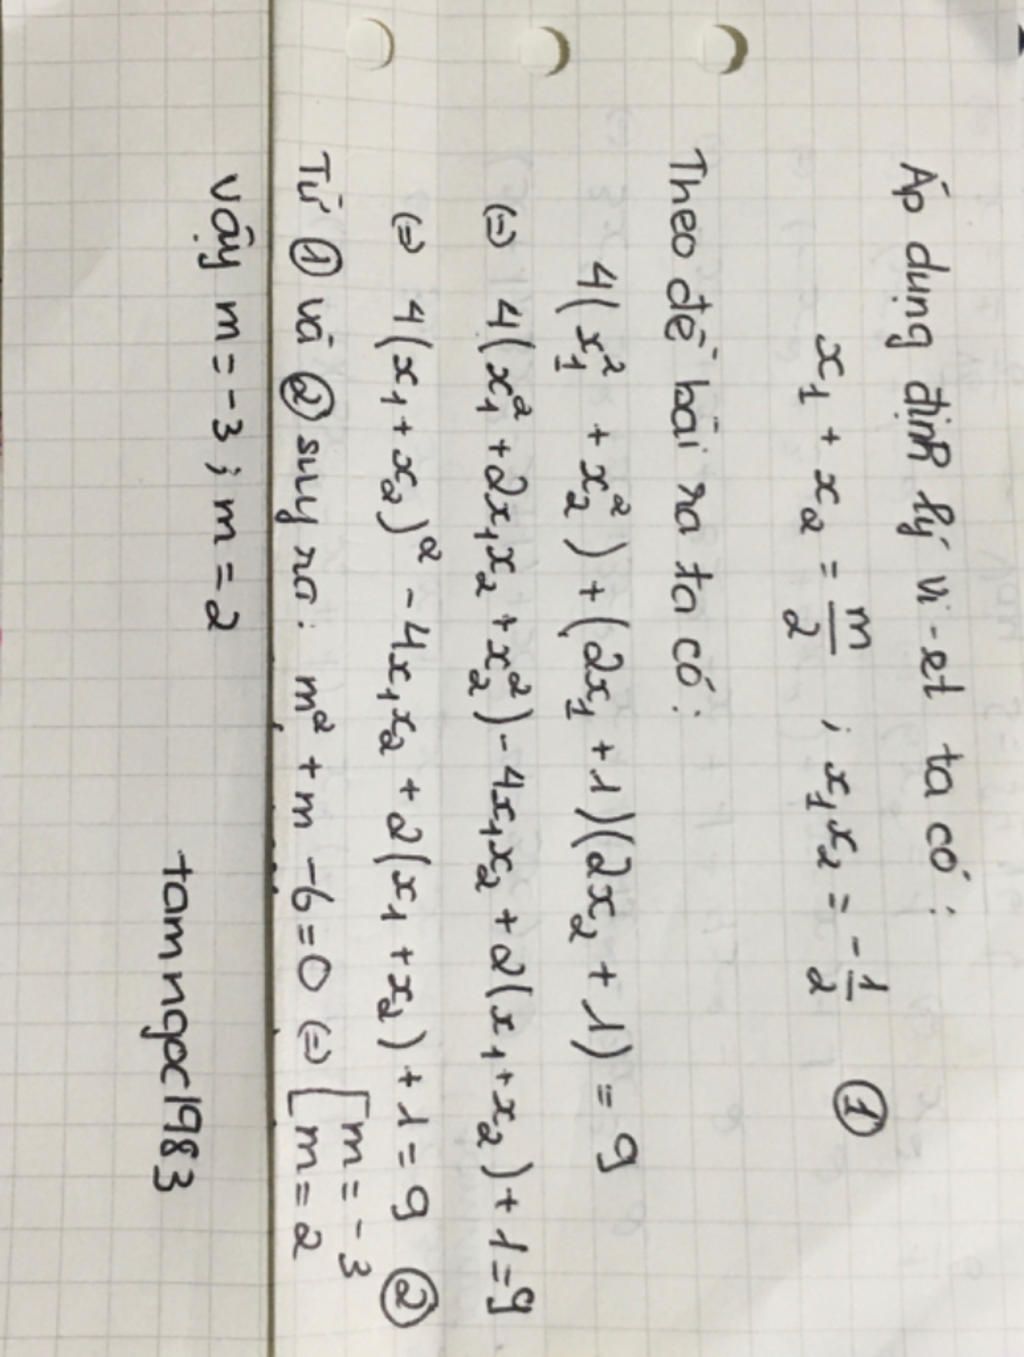 Áp dụng định lý vi-et ta có:
x₁ + x₂ = m/2 ; x₁x₂ = -1/2 ①
Theo đề bài ra ta có:
4(x₁² + x₂²) + (2x₁ + 1)(2x₂ + 1) = 9
(=) 4(x₁² + 2x₁x₂ + x₂²) - 4x₁x₂ + 2(x₁ + x₂) + 1 = 9
(=) 4(x₁ + x₂)² - 4x₁x₂ + 2(x₁ + x₂) + 1 = 9 ②
Từ ① và ② suy ra: m² + m - 6 = 0 (=) [m = -3
[m = 2
Vậy m = -3; m = 2
tamngoc1983